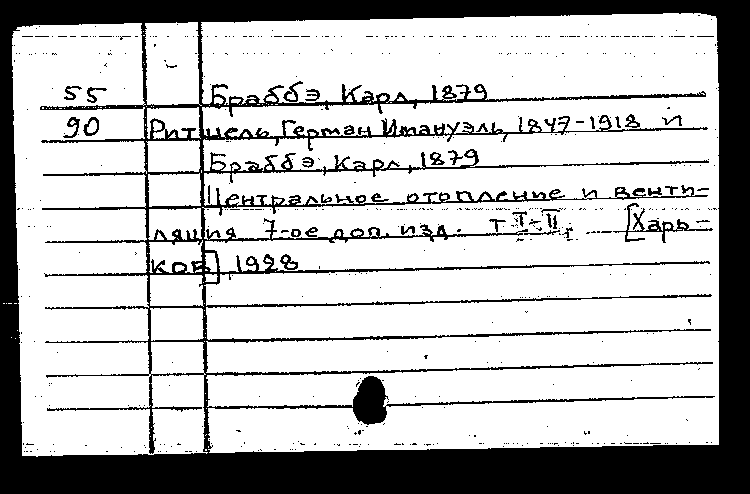 55 Браббэ, Карл, 1879
90 Ритшель, Герман Имануэль, 1847-1918 и
Браббэ, Карл, 1879
Центральное отопление и венти=
ляция 7-ое доп. изд. т I-II. [Харь=
ков], 1928